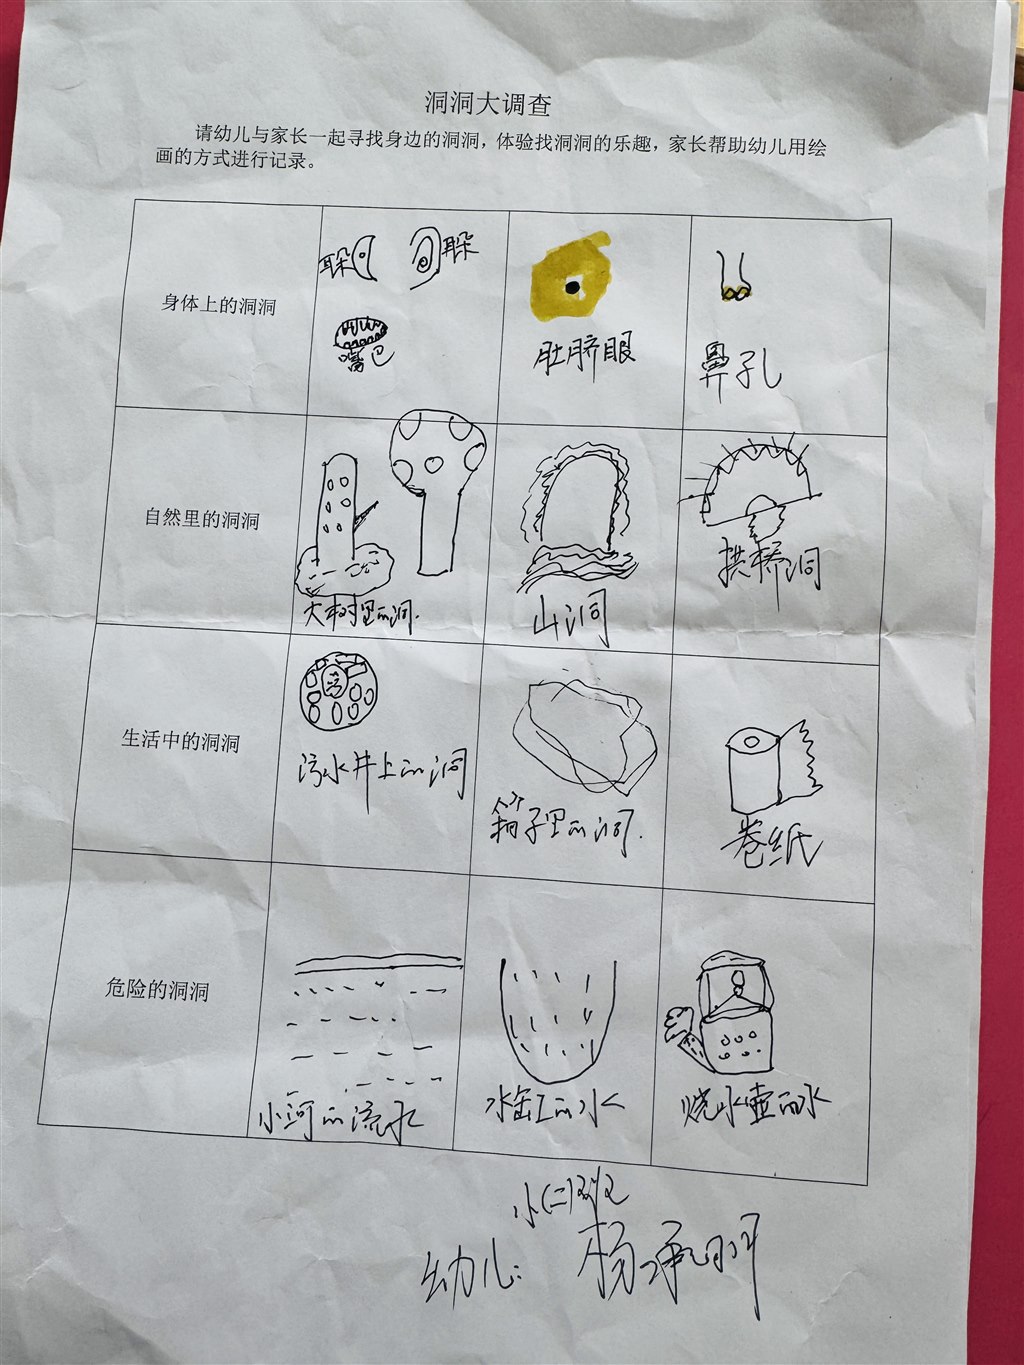 洞洞大调查
请幼儿与家长一起寻找身边的洞洞，体验找洞洞的乐趣，家长帮助幼儿用绘
画的方式进行记录。
身体上的洞洞
耳朵
耳朵
嘴巴
肚脐眼
鼻孔
自然里的洞洞
大树里的洞.
山洞
拱桥洞
生活中的洞洞
污水井上的洞
箱子里的洞.
卷纸
危险的洞洞
小河的流水
水缸的水
烧水壶的水
小(二)班
幼儿: 杨承